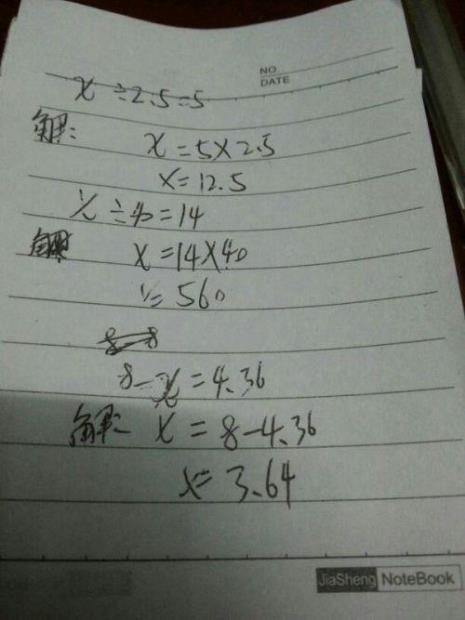 NO
DATE
x÷2.5=5
解:
x=5×2.5
x=12.5
x÷40=14
解
x=14×40
x=560
8-x=4.36
解: x=8-4.36
x=3.64
JiaSheng NoteBook